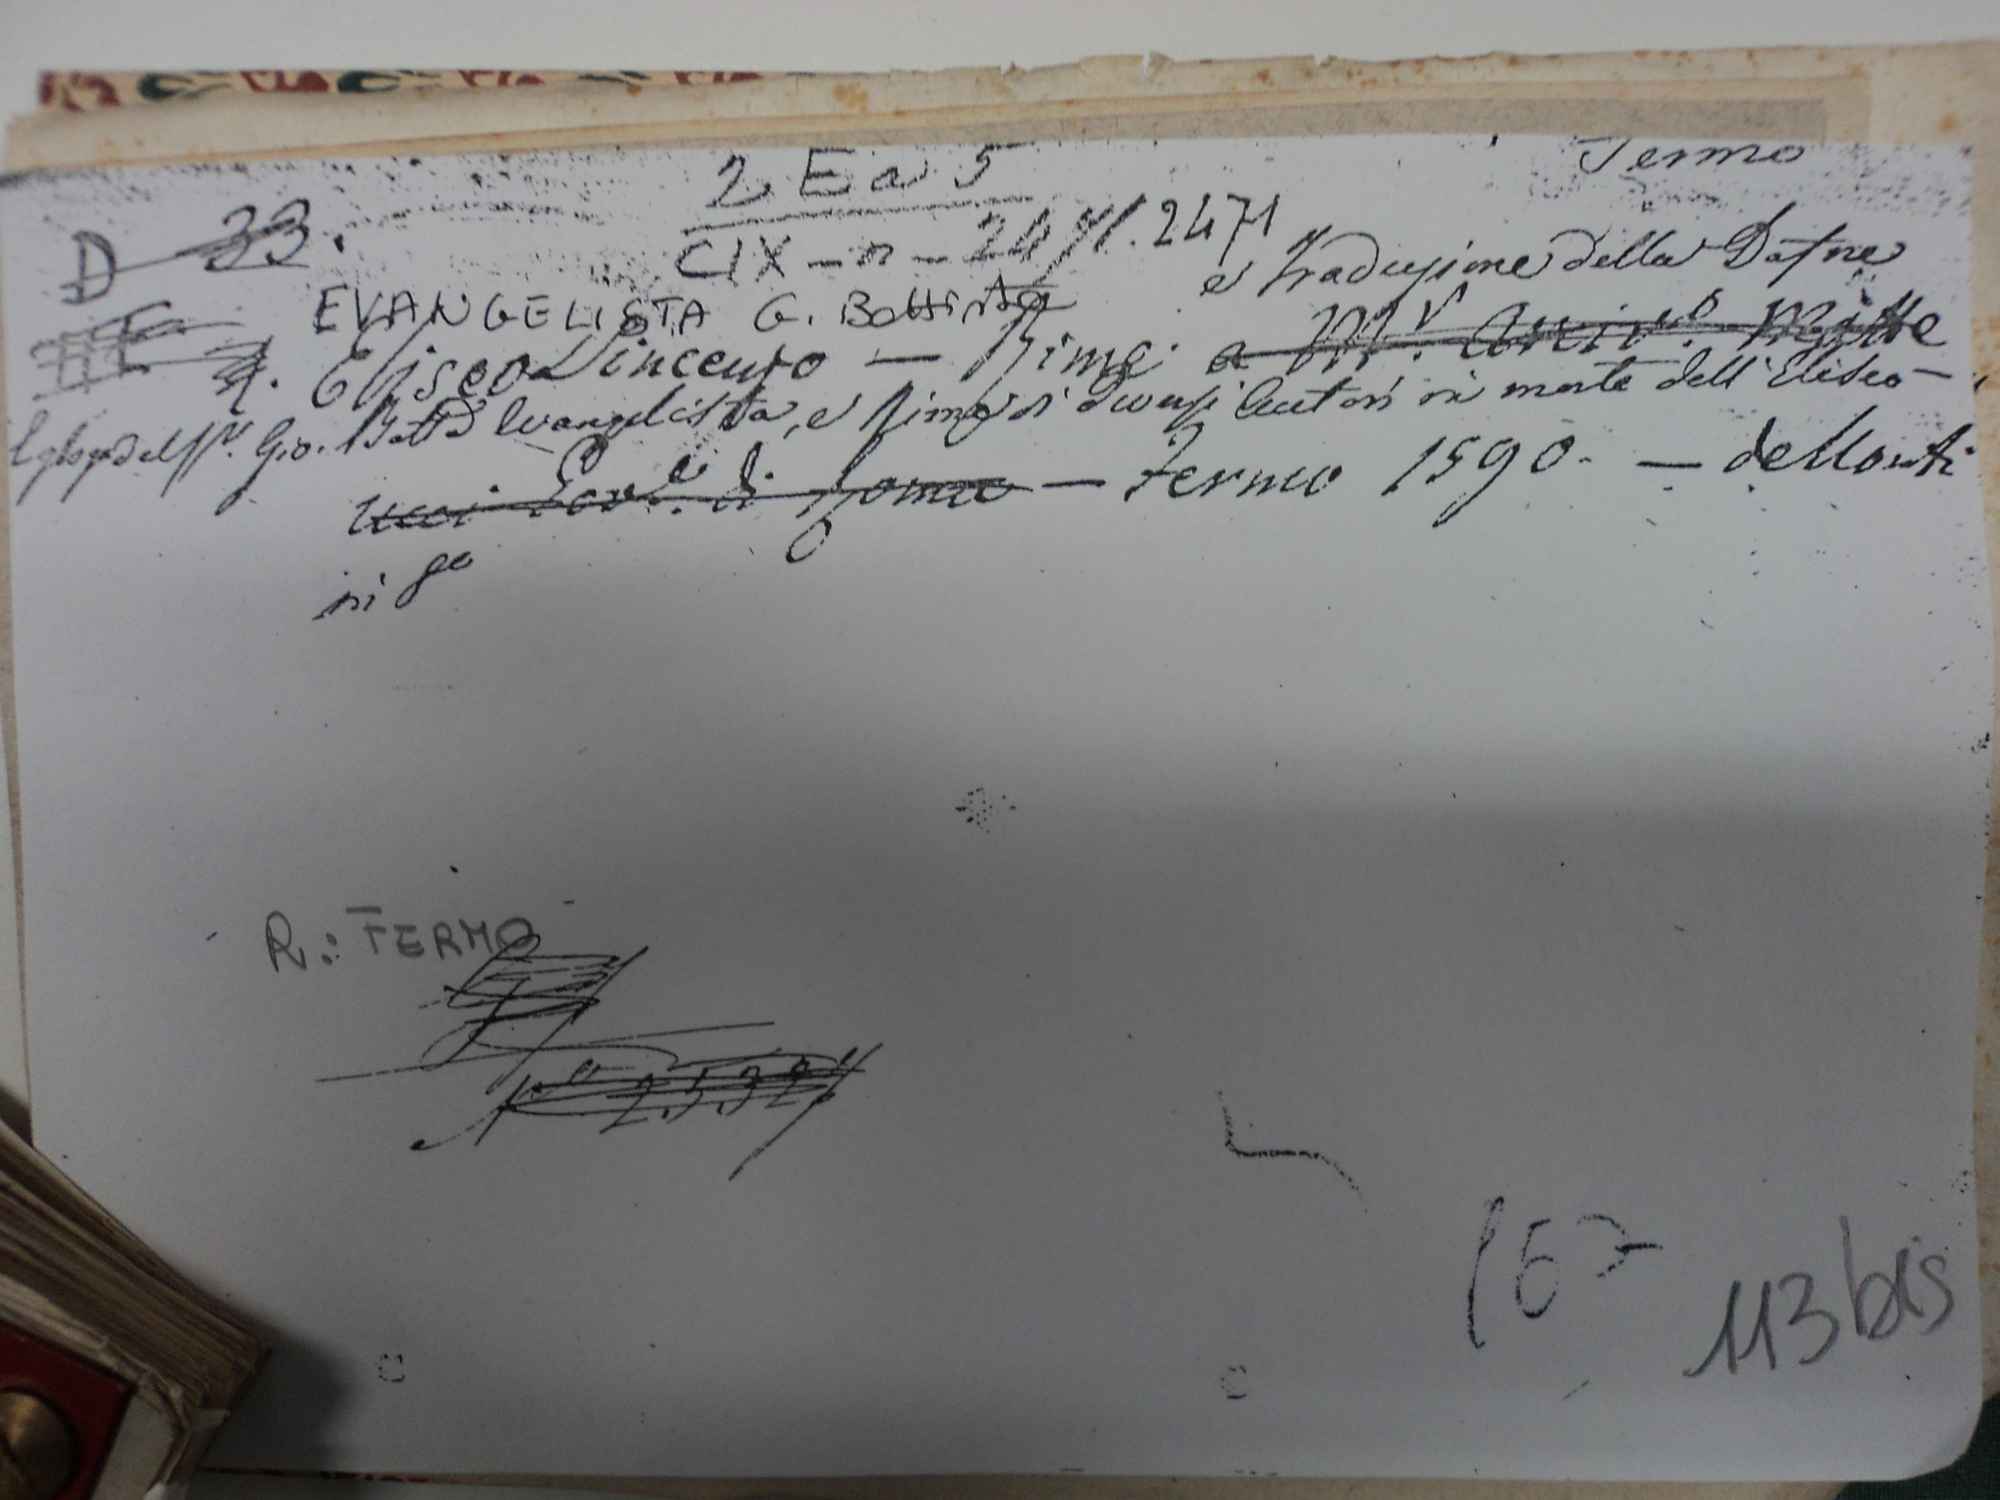 Fermo
2 E a 5
D 33.
CIX - n - 24 
2471
e Traduzione della Dafne
EVANGELISTA G. Battista
Eliseo Vincenzo — Rime
Egloga del Sr. Gio. Batta Evangelista, e Rime di diversi Autori in morte dell'Eliseo —
— Fermo 1590. — de Monti
in 8o
R: FERMO
No 2532
113 bis